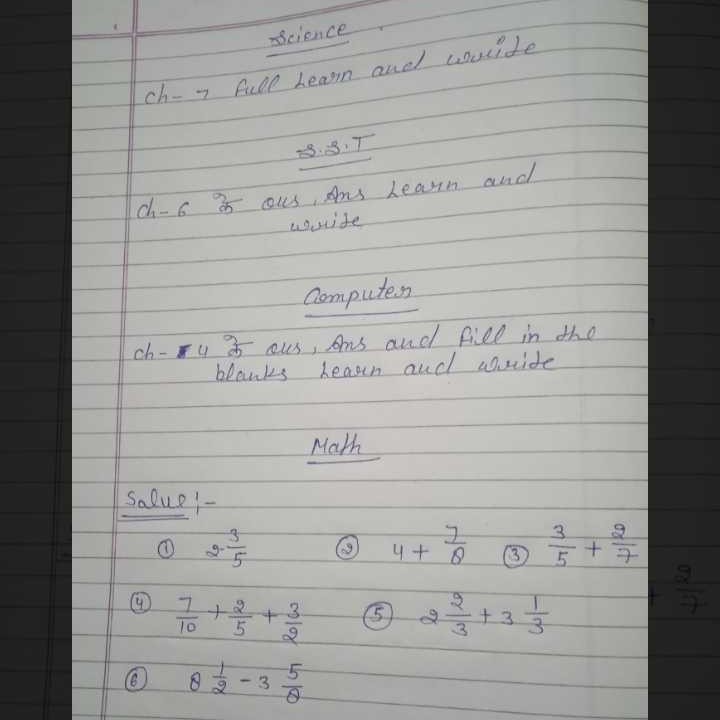 Science
ch- 7 full Learn and write
S.S.T
ch-6 के Qus, Ans Learn and
write
Computer
ch- 4 के Qus, Ans and fill in the
blanks Learn and write
Math
Solve :-
① 2-3/5 ② 4 + 7/8 ③ 3/5 + 2/7
④ 7/10 + 2/5 + 3/2 ⑤ 2 2/3 + 3 1/3
⑥ 8 1/2 - 3 5/8